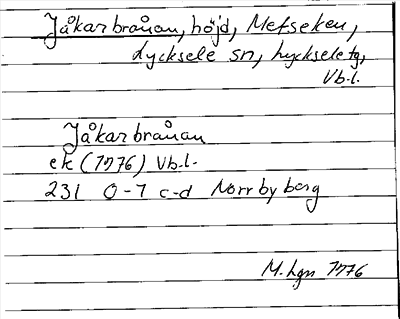 Jåkarbrånan, höjd, Metseken,
Lycksele sn, Lycksele tg,
Vb.l.
Jåkarbrånan
ek (1776) Vb.l.
231 0-1 c-d Norrbyberg
M. Lgn 1776